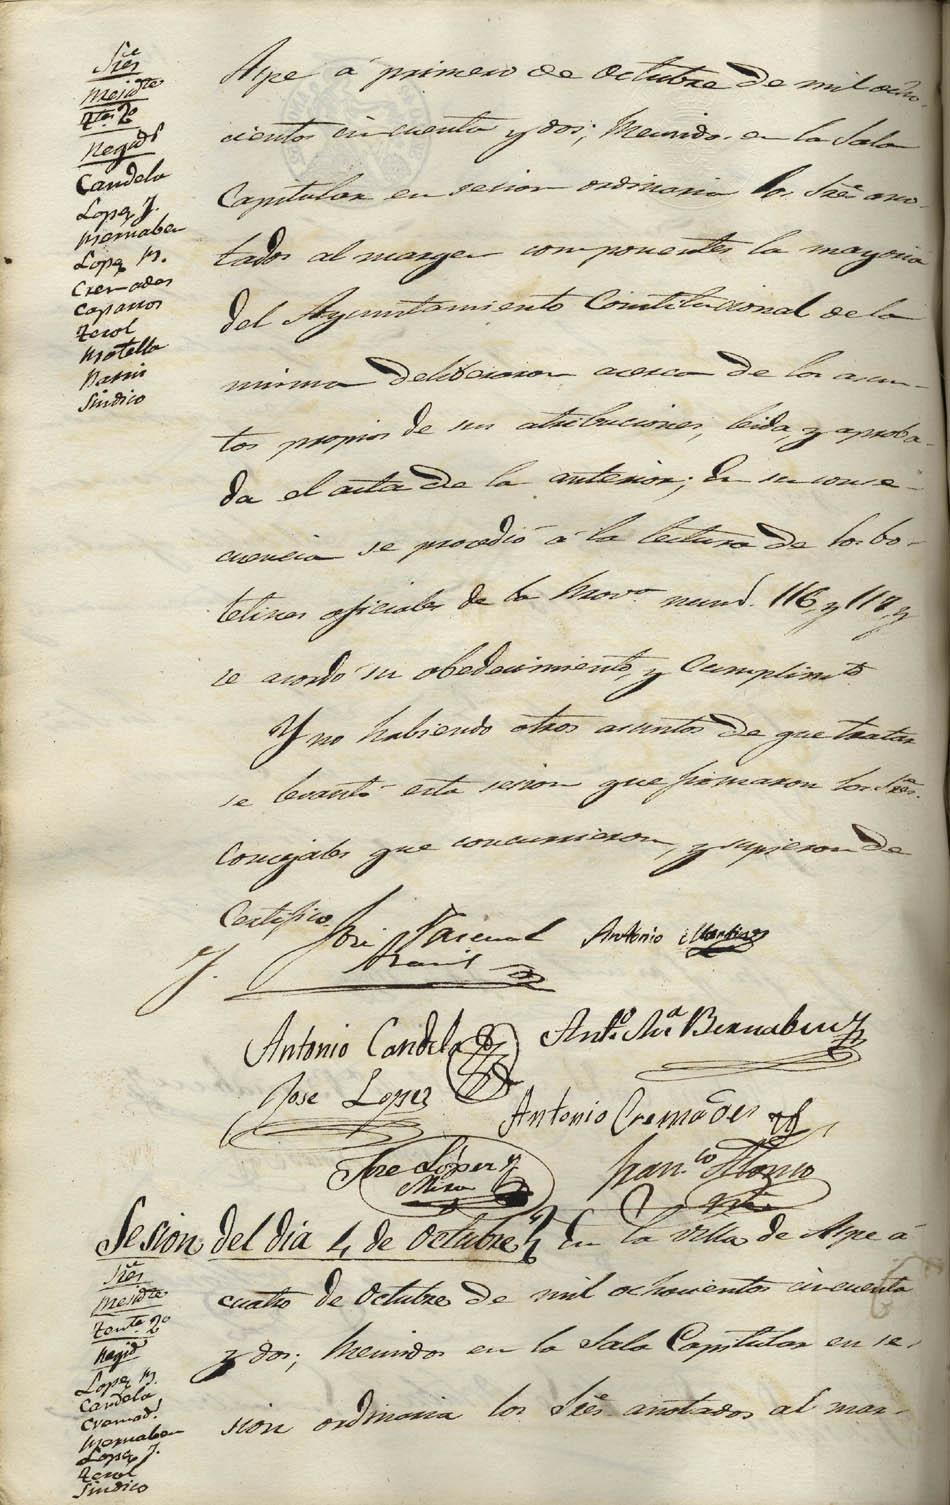 Sres
Presidte
Tte 2º
Regids
Candela
Lopez J.
Bernabeu
Lopez M.
Cremades
Caparros
Terol
Botella
Sindico
Aspe á primero de Octubre de mil ocho-
cientos cincuenta y dos; Reunidos en la Sala
Capitular en sesion ordinaria los Sres ano-
tados al margen componentes la mayoria
del Ayuntamiento Constitucional de la
misma deliberaron acerca de los asun-
tos propios de sus atribuciones, leida, y aproba-
da el acta de la anterior; En su conse-
cuencia se procedió á la lectura de los bo-
letines oficiales de la Prova nums. 116, y 117, y
se acordó su obedecimiento, y Cumplimto
Y no habiendo otros asuntos de que tratar
se levantó esta sesion que firmaron los Sres.
Concejales que concurrieron, y supieron de
Certifico.
José Pascual
Antonio Martinez
Antonio Candela
Anto. Ma Bernabeu
Jose Lopez
Antonio Cremades
Jose López
Mira
Franco Alonso
Sesion del dia 4 de Octubre En la villa de Aspe á
cuatro de Octubre de mil ochocientos cincuenta
y dos; Reunidos en la Sala Capitular en se-
sion ordinaria los Sres anotados al mar-
Sres
Presidte
Tente 2º
Regid
Lopez M.
Candela
Cremads
Bernabeu
Lopez J.
Terol
Sindico